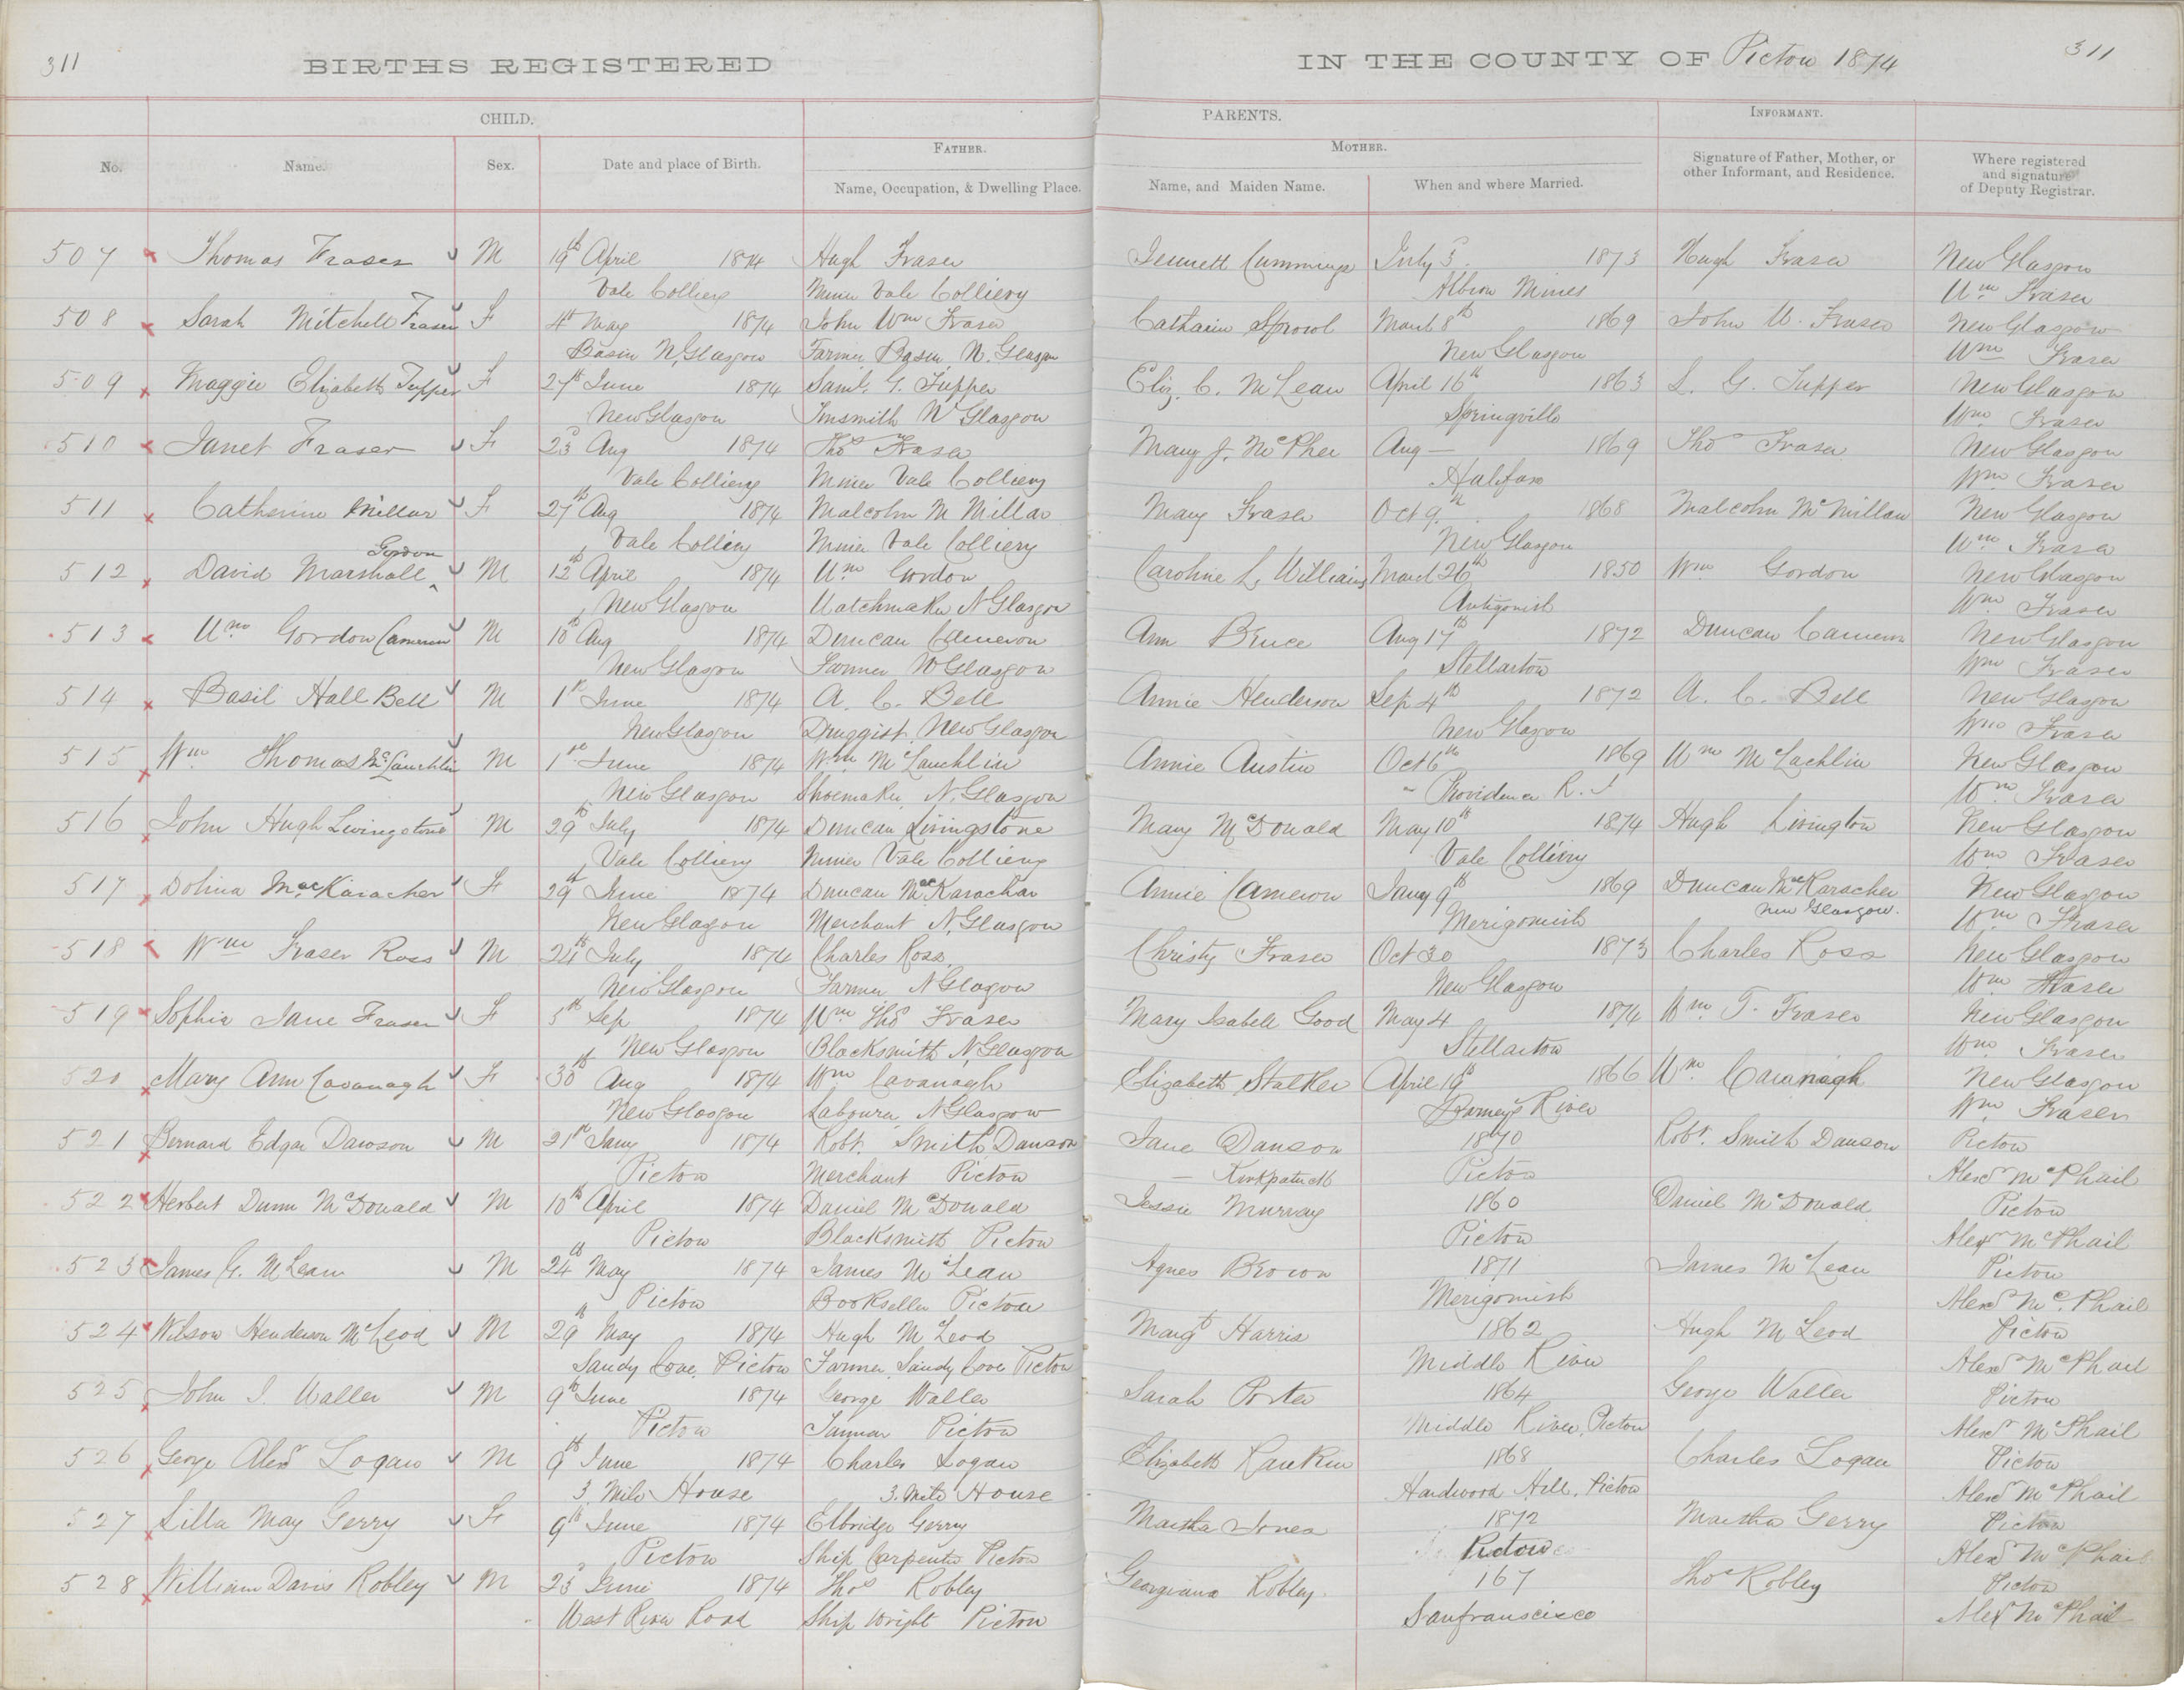 311
BIRTHS REGISTERED
IN THE COUNTY OF Pictou 1874
311
CHILD.
PARENTS.
INFORMANT.
No.
Name.
Sex.
Date and place of Birth.
FATHER.
Name, Occupation, & Dwelling Place.
MOTHER.
Name, and Maiden Name.
When and where Married.
Signature of Father, Mother, or other Informant, and Residence.
Where registered and signature of Deputy Registrar.
507 Thomas Fraser M 19th April 1874 Hugh Fraser Jennett Cummings July 3 1873 Hugh Fraser New Glasgow
Vale Colliery Miner Vale Colliery Albion Mines Wm Fraser
508 Sarah Mitchell Fraser F 4th May 1874 John Wm Fraser Catharin Sproul March 8th 1869 John W. Fraser New Glasgow
Basin N. Glasgow Farmer Basin N. Glasgow New Glasgow Wm Fraser
509 Maggie Elizabeth Tupper F 27th June 1874 Saml. G. Tupper Eliz. C. McLean April 16th 1863 S. G. Tupper New Glasgow
New Glasgow Tinsmith N Glasgow Springville Wm Fraser
510 Janet Fraser F 23d Aug 1874 Thos Fraser Mary J. McPhee Aug — 1869 Thos Fraser New Glasgow
Vale Colliery Miner Vale Colliery Halifax Wm Fraser
511 Catherine Millar F 27th Aug 1874 Malcolm M Millar Mary Fraser Oct 9th 1868 Malcolm McMillan New Glasgow
Vale Colliery Miner Vale Colliery New Glasgow Wm Fraser
512 David Marshall Gordon M 12th April 1874 Wm Gordon Caroline L. Williams March 26th 1850 Wm Gordon New Glasgow
New Glasgow Watchmaker N Glasgow Antigonish Wm Fraser
513 Wm Gordon Cameron M 10th Aug 1874 Duncan Cameron Ann Bruce Aug 17th 1872 Duncan Cameron New Glasgow
New Glasgow Farmer N Glasgow Stellarton Wm Fraser
514 Basil Hall Bell M 1st June 1874 A. C. Bell Annie Henderson Sep 4th 1872 A. C. Bell New Glasgow
New Glasgow Druggist, New Glasgow New Glasgow Wm Fraser
515 Wm Thomas McLauchlin M 1st June 1874 Wm McLauchlin Annie Austin Oct 6th 1869 Wm McLachlin New Glasgow
New Glasgow Shoemaker N. Glasgow Providence R. I Wm Fraser
516 John Hugh Livingstone M 29th July 1874 Duncan Livingstone Mary McDonald May 10th 1874 Hugh Livington New Glasgow
Vale Colliery Miner Vale Colliery Vale Colliery Wm Fraser
517 Dolina MacKaracher F 29th June 1874 Duncan MacKarachar Annie Cameron Jany 9th 1869 Duncan McKaracher New Glasgow
New Glasgow Merchant N. Glasgow Merigomish New Glasgow. Wm Fraser
518 Wm Fraser Ross M 24th July 1874 Charles Ross Christy Fraser Oct 30 1873 Charles Ross New Glasgow
New Glasgow Farmer N Glasgow New Glasgow Wm Fraser
519 Sophia Jane Fraser F 5th Sep 1874 Wm Thos Fraser Mary Isabell Good May 4 1874 Wm T. Fraser New Glasgow
New Glasgow Blacksmith N Glasgow Stellarton Wm Fraser
520 Mary Ann Cavanagh F 30th Aug 1874 Wm Cavanagh Elizabeth Stalker April 19th 1866 Wm Cavanagh New Glasgow
New Glasgow Labourer N Glasgow Barney's River Wm Fraser
521 Bernard Edgar Dawson M 21st Jany 1874 Robt. Smith Dawson Jane Dawson 1870 Robt. Smith Dawson Pictou
Pictou Merchant Pictou — Kirkpatrick Pictou Alexr McPhail
522 Herbert Dunn McDonald M 10th April 1874 Daniel McDonald Jessie Murray 1860 Daniel McDonald Pictou
Pictou Blacksmith Pictou Pictou Alexr McPhail
523 James G. McLean M 24th May 1874 James McLean Agnes Brown 1871 James McLean Pictou
Pictou Bookseller Pictou Merigomish Alexr McPhail
524 Wilson Henderson McLeod M 29th May 1874 Hugh McLeod Margt Harris 1862 Hugh McLeod Pictou
Sandy Cove, Pictou Farmer, Sandy Cove Pictou Middle River Alexr McPhail
525 John I. Waller M 9th June 1874 George Waller Sarah Porter 1864 George Waller Pictou
Pictou Tanner Pictou Middle River, Pictou Alexr McPhail
526 George Alexr Logan M 9th June 1874 Charles Logan Elizabeth Rankin 1868 Charles Logan Pictou
3 Mile House 3 Mile House Hardwood Hill, Pictou Alexr McPhail
527 Lilla May Gerry F 9th June 1874 Elbridge Gerry Martha Jones 1872 Martha Gerry Pictou
Pictou Ship Carpenter Pictou Pictou Alexr McPhail
528 William Davis Robley M 23d June 1874 Thos Robley Georgiana Robley 167 Thos Robley Pictou
West River Road Ship Wright Pictou Sanfranscisco Alexr McPhail